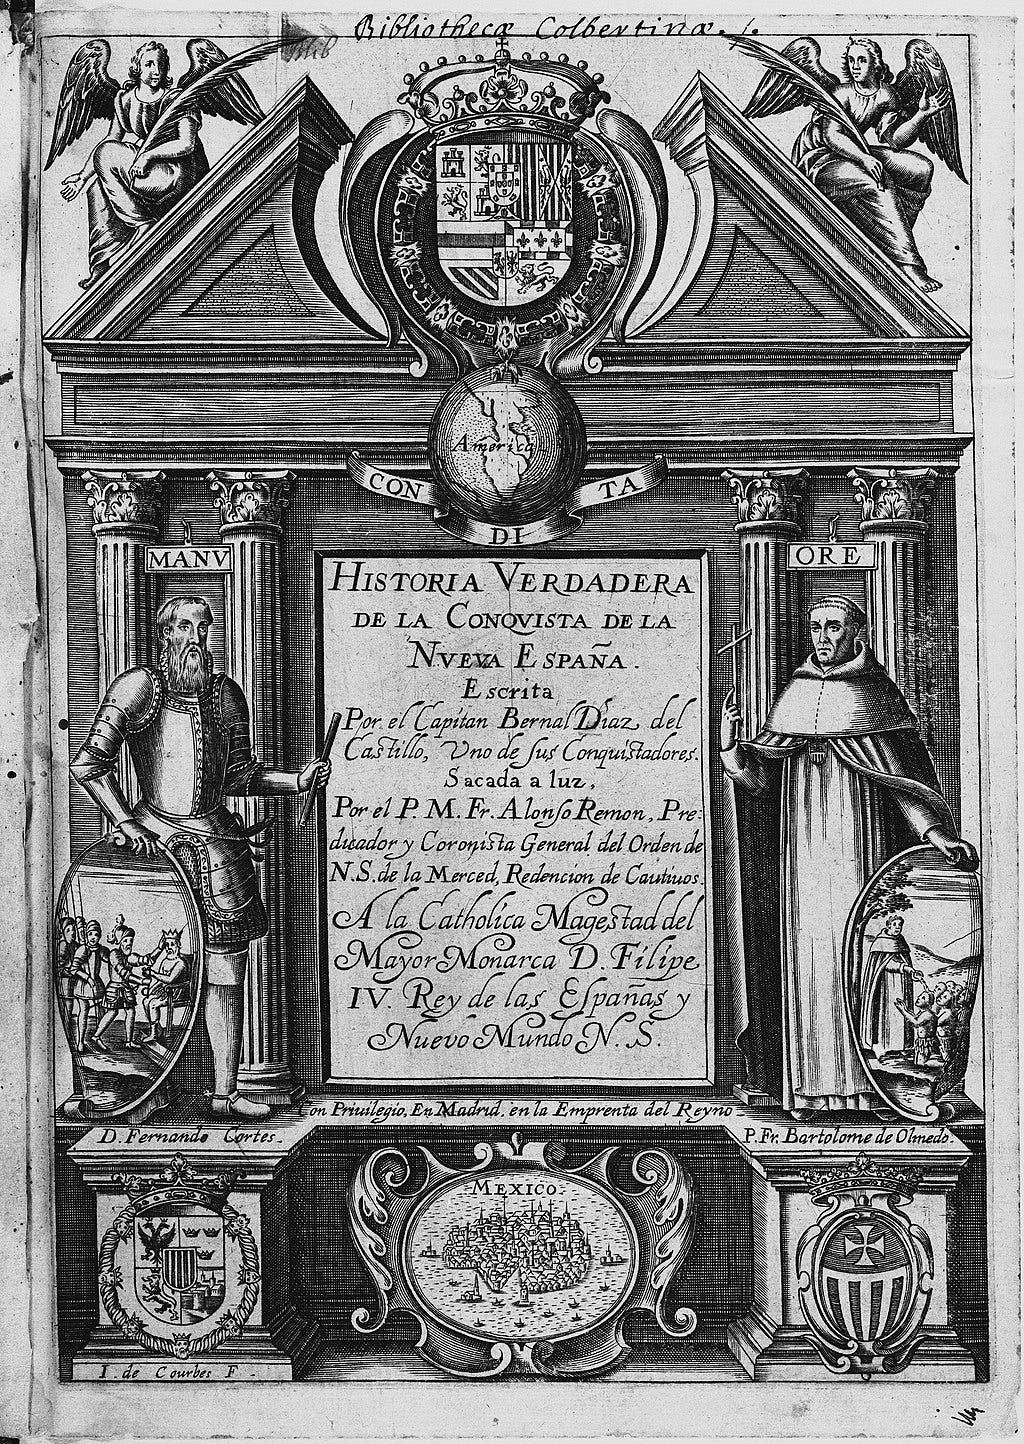 Bibliothecæ Colbertinæ.
America
CON
DI
TA
MANV
ORE
HISTORIA VERDADERA
DE LA CONQVISTA DE LA
NVEVA ESPAÑA.
Escrita
Por el Capitan Bernal Diaz, del
Castillo, Vno de sus Conquistadores.
Sacada a luz,
Por el P. M. Fr. Alonso Remon, Pre:
dicador y Coronista General del Orden de
N.S. de la Merced, Redencion de Cautiuos.
A la Catholica Magestad del
Mayor Monarca D. Filipe
IV. Rey de las Españas y
Nuevo Mundo N. S.
Con Priuilegio, En Madrid, en la Emprenta del Reyno
D. Fernando Cortes.
P. Fr. Bartolome de Olmedo.
MEXICO:
I. de Courbes F.